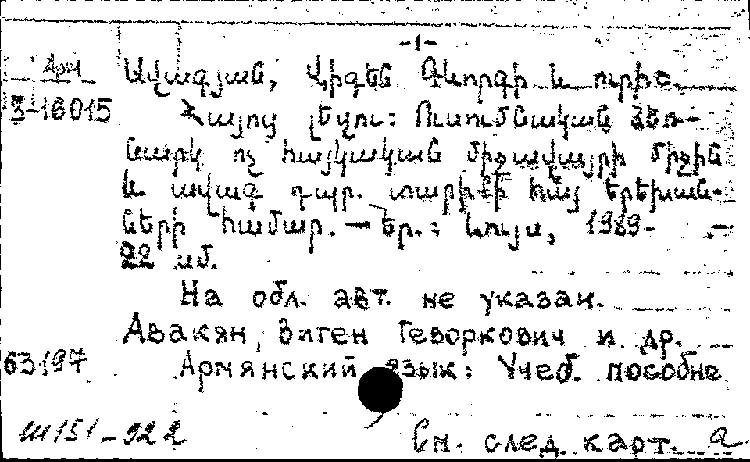 -1-
Арм Ավագյան, Վիգեն Գևորգի և ուրիշ.
3-16015 Հայոց լեզու: Ուսումնական ձեռ-
նարկ ոչ հայկական միջավայրի միջին
և ավագ դպր. տարիքի հայ երեխան-
ների համար. — Եր.: Լույս, 1989-
22 սմ.
На обл. авт. не указан.
Авакян, Виген Геворкович и др.
63197 Армянский язык: Учеб. пособие
Ш151-922 См. след. карт. а